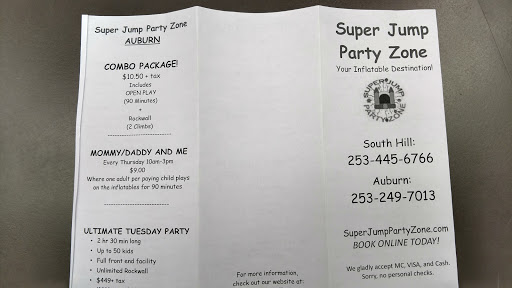 Super Jump Party Zone
AUBURN
COMBO PACKAGE!
$10.50 + tax
Includes
OPEN PLAY
(90 Minutes)
+
Rockwall
(2 Climbs)
MOMMY/DADDY AND ME
Every Thursday 10am-3pm
$9.00
Where one adult per paying child plays
on the inflatables for 90 minutes
ULTIMATE TUESDAY PARTY
• 2 hr 30 min long
• Up to 50 kids
• Full front end facility
• Unlimited Rockwall
• $449+ tax
For more information,
check out our website at:
Super Jump
Party Zone
Your Inflatable Destination!
SUPER JUMP
PARTY ZONE
South Hill:
253-445-6766
Auburn:
253-249-7013
SuperJumpPartyZone.com
BOOK ONLINE TODAY!
We gladly accept MC, VISA, and Cash.
Sorry, no personal checks.